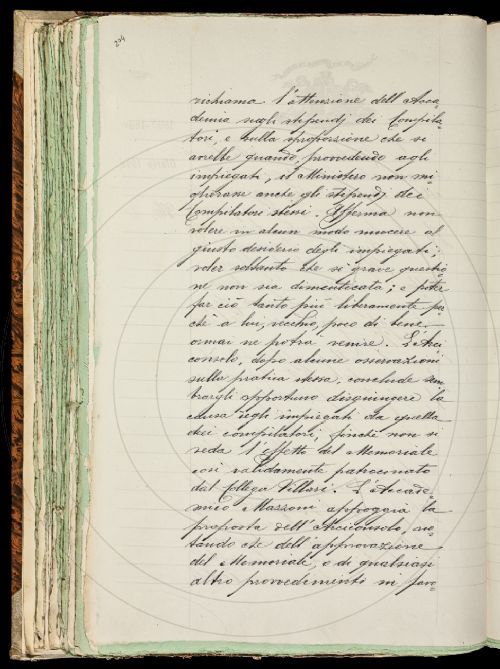 204
richiama l'attenzione dell'Acca=
demia sugli stipendj dei Compila=
tori, e sulla sproporzione che si
avrebbe quando, provvedendo agli
impiegati, il Ministero non mi=
gliorasse anche gli stipendj dei
Compilatori stessi. Afferma non
volere in alcun modo nuocere al
giusto desiderio degli impiegati;
voler soltanto che sì grave questio=
ne non sia dimenticata; e poter
far ciò tanto più liberamente per=
chè a lui, vecchio, poco di bene
ormai ne potrà venire. L'Arci=
consolo, dopo alcune osservazioni
sulla pratica stessa, conclude sem=
brargli opportuno disgiungere la
causa degli impiegati da quella
dei compilatori, finchè non si
veda l'effetto del Memoriale
così validamente patrocinato
dal Collega Villari. L'Accade=
mico Mazzoni appoggia la
proposta dell'Arciconsolo, no=
tando che dell'approvazione
del Memoriale, o di qualsiasi
altro provvedimento in favo=